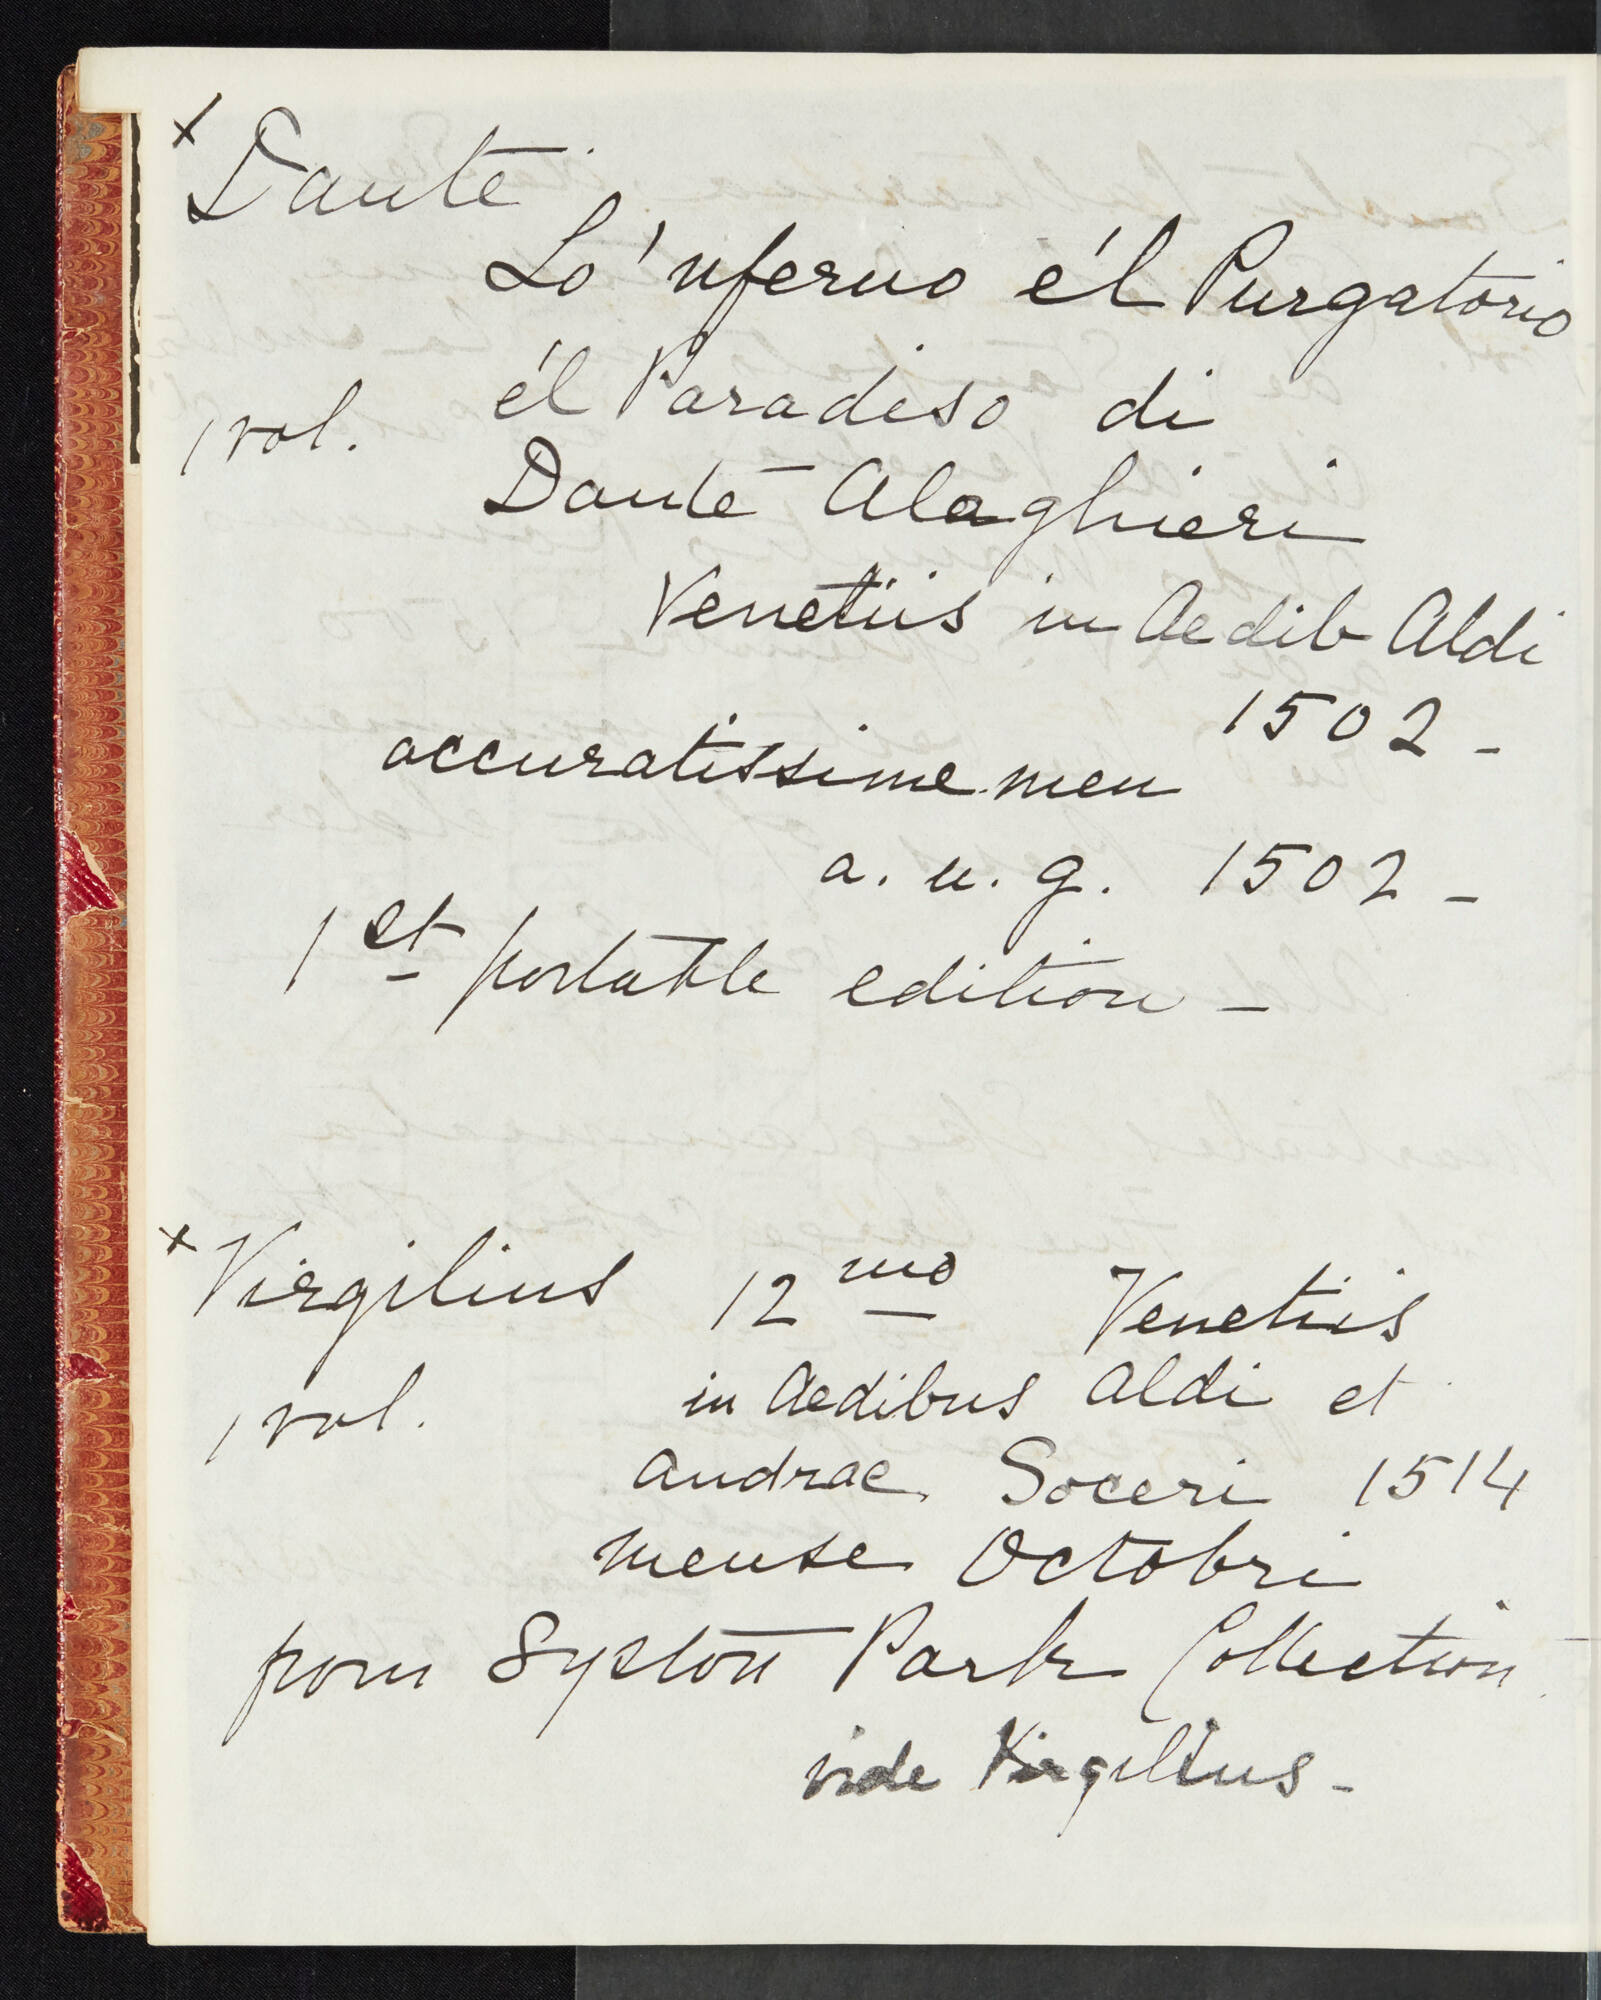 x Dante
Lo 'nferno e'l Purgatorio
e'l Paradiso di
1 vol.
Dante Alaghieri
Venetiis in Aedib Aldi
1502 -
accuratissime men
a. u. g. 1502 -
1st portable edition -
x Virgilius 12mo Venetiis
1 vol. in Aedibus Aldi et
Andrae Soceri 1514
mense Octobri
from Syston Park Collection
vide Virgilius -